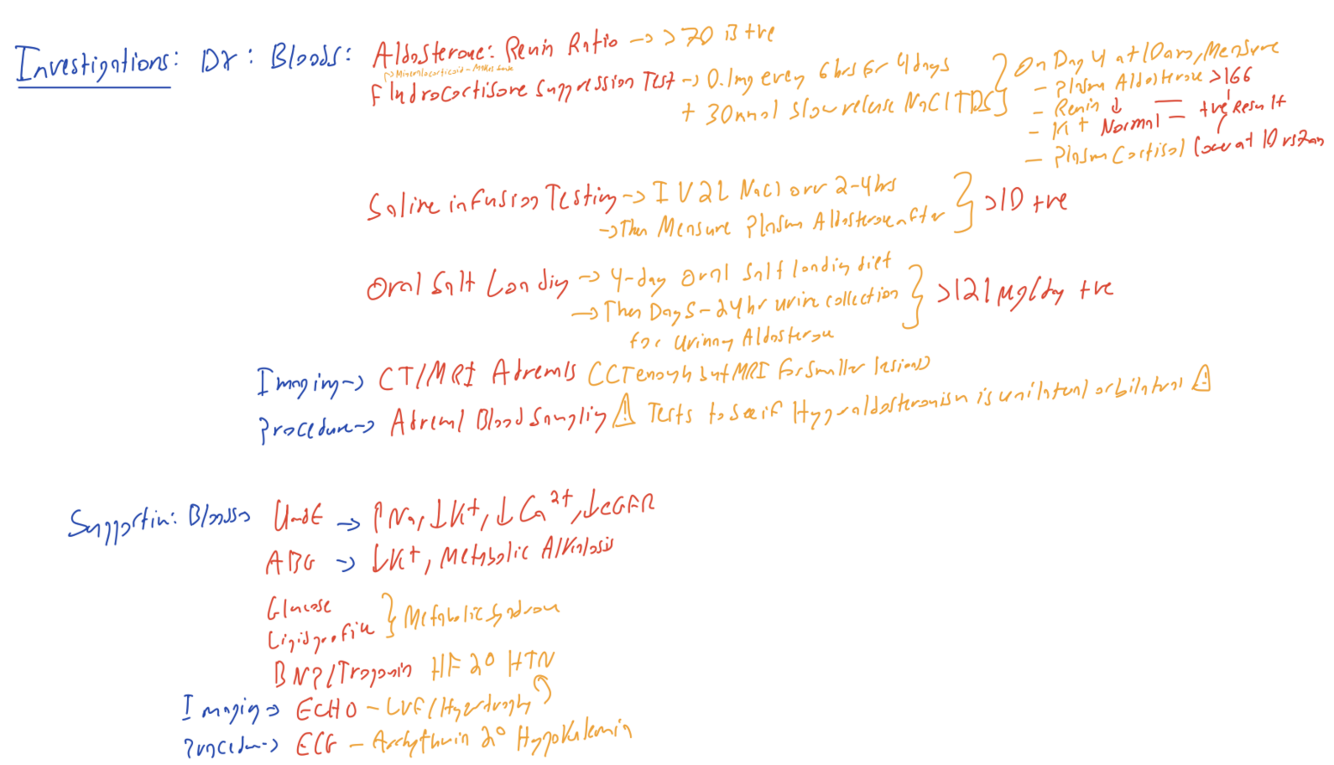 Investigations: Dx: Bloods: Aldosterone: Renin Ratio → >70 is +ve
Fludrocortisone Suppression Test → 0.1mg every 6hrs for 4days
+ 30mmol slow release NaCl TDS
On Day 4 at 10am, Measure
- Plasma Aldosterone >166
- Renin ↓
- K+ Normal = +ve Result
- Plasma Cortisol lower at 10 vs 7am
Saline infusion Testing → IV 2L NaCl over 2-4hrs
→ Then Measure Plasma Aldosterone after
>10 +ve
Oral Salt Loading → 4-day oral salt loading diet
→ Then Day 5 - 24hr urine collection
for Urinary Aldosterone
>12 µg/day +ve
Imaging → CT/MRI Adrenals (CT enough but MRI for smaller lesions)
Procedure → Adrenal Blood Sampling ⚠ Tests to see if Hyperaldosteronism is unilateral or bilateral ⚠
Supportin: Bloods U&E → ↑Na, ↓K+, ↓Ca2+, ↓eGFR
ABG → ↓K+, Metabolic Alkalosis
Glucose
Lipid profile } Metabolic Syndrome
BNP/Troponin HF 2° HTN
Imaging → ECHO - LVF/Hypertrophy
Procedure → ECG - Arrhythmia 2° Hypokalemia